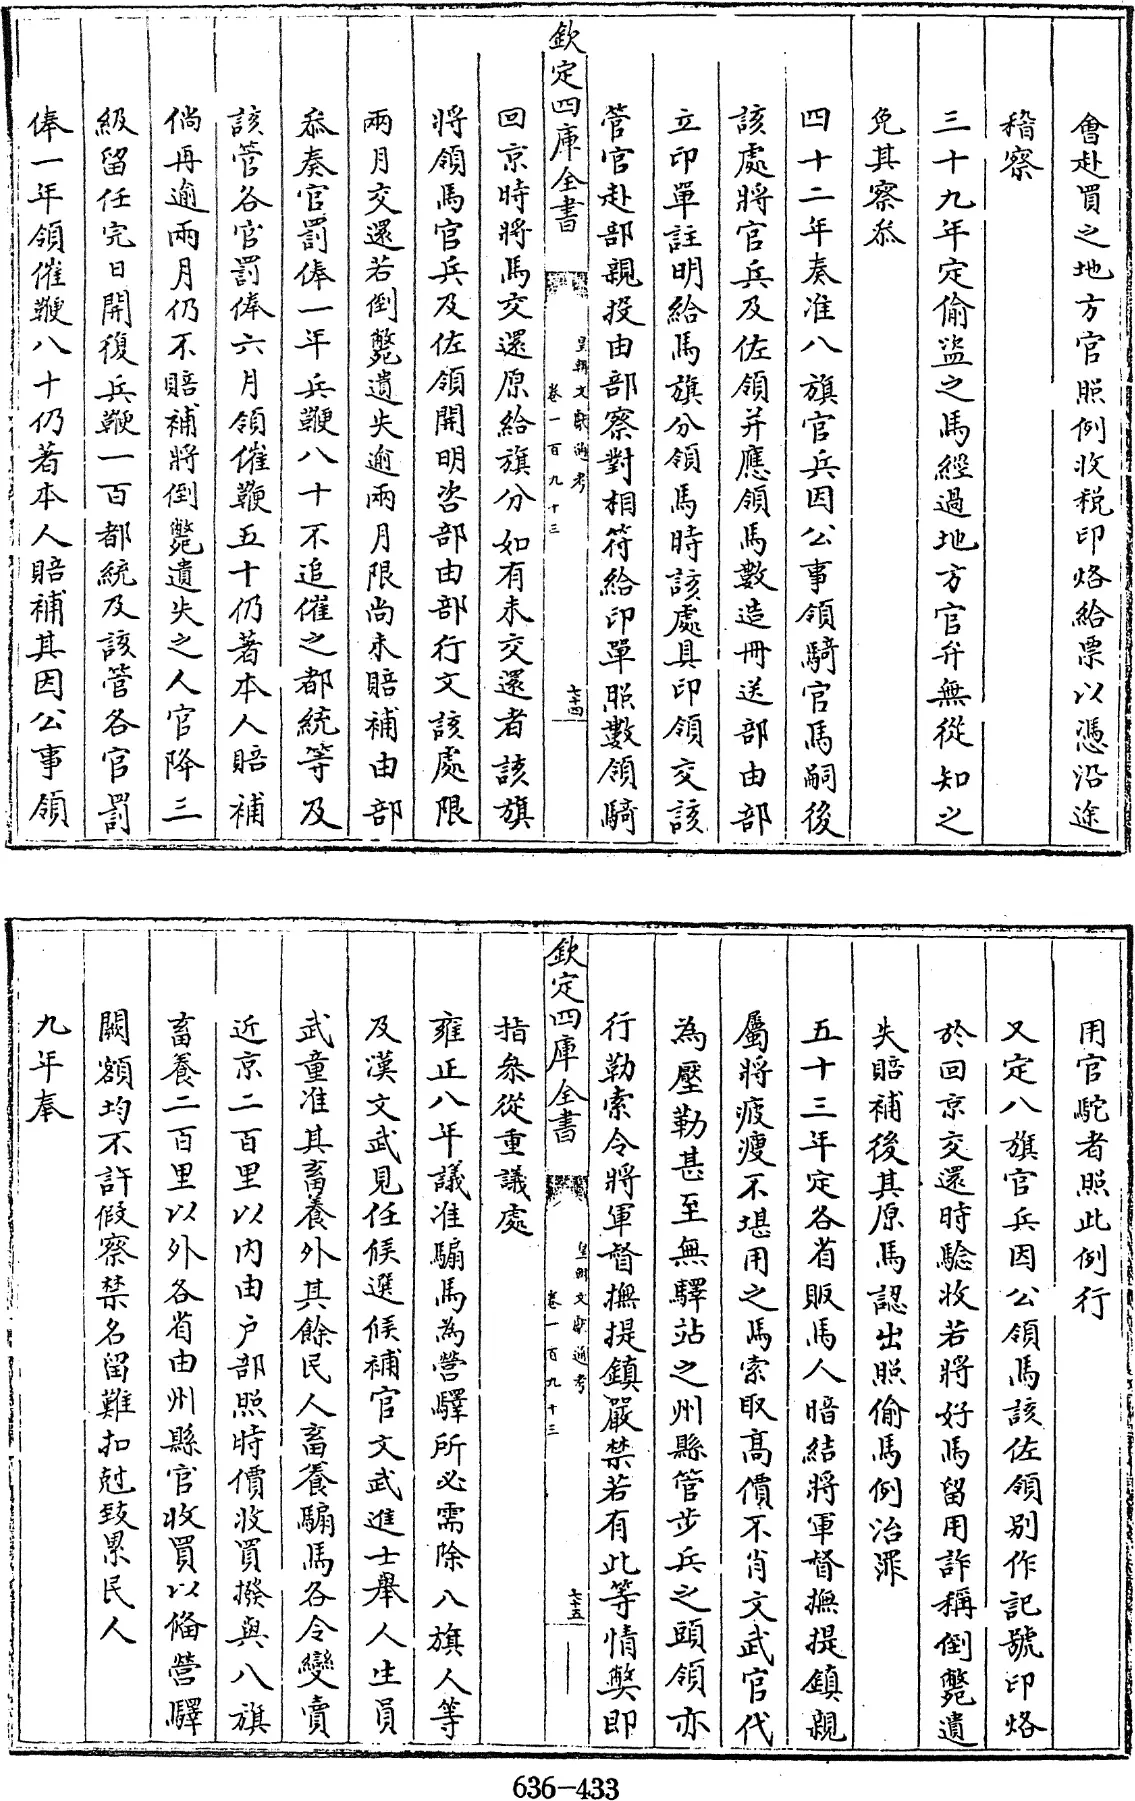 會赴買之地方官照例收稅印烙給票以憑沿途
稽察
三十九年定偷盜之馬經過地方官弁無從知之
免其察叅
四十二年奏准八旗官兵因公事領騎官馬嗣後
該處將官兵及佐領并應領馬數造冊送部由部
立印單註明給馬旗分領馬時該處具印領交該
管官赴部親投由部察對相符給印單照數領騎
欽定四庫全書
皇朝文獻通考
卷一百九十三
七十四
回京時將馬交還原給旗分如有未交還者該旗
將領馬官兵及佐領開明咨部由部行文該處限
兩月交還若倒斃遺失逾兩月限尚未賠補由部
叅奏官罰俸一年兵鞭八十不追催之都統等及
該管各官罰俸六月領催鞭五十仍著本人賠補
倘再逾兩月仍不賠補將倒斃遺失之人官降三
級留任完日開復兵鞭一百都統及該管各官罰
俸一年領催鞭八十仍著本人賠補其因公事領
用官駝者照此例行
又定八旗官兵因公領馬該佐領别作記號印烙
於回京交還時驗收若將好馬留用詐稱倒斃遺
失賠補後其原馬認出照偷馬例治罪
五十三年定各省販馬人暗結將軍督撫提鎮親
屬將疲瘦不堪用之馬索取高價不肖文武官代
為壓勒甚至無驛站之州縣管步兵之頭領亦
行勒索令將軍督撫提鎮嚴禁若有此等情弊即
欽定四庫全書
皇朝文獻通考
卷一百九十三
七十五
指叅從重議處
雍正八年議准騸馬為營驛所必需除八旗人等
及漢文武見任候選候補官文武進士舉人生員
武童准其畜養外其餘民人畜養騸馬各令變賣
近京二百里以内由户部照時價收買撥與八旗
畜養二百里以外各省由州縣官收買以備營驛
闕額均不許假察禁名留難扣尅致累民人
九年奉
636-433